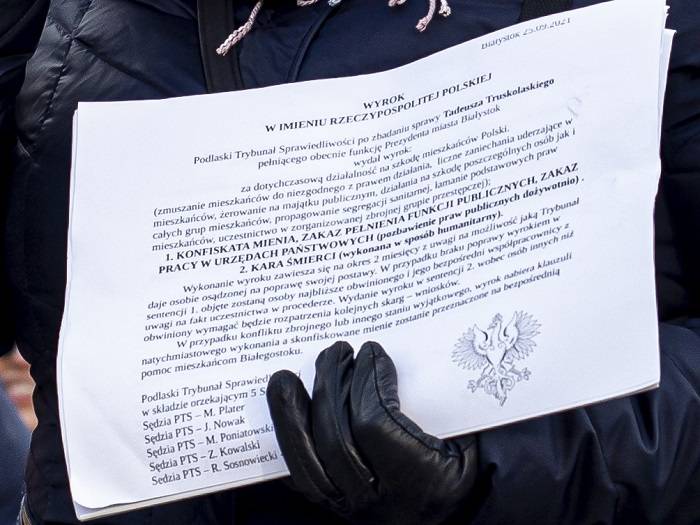 Białystok 25.09.2021
WYROK
W IMIENIU RZECZYPOSPOLITEJ POLSKIEJ
Podlaski Trybunał Sprawiedliwości po zbadaniu sprawy Tadeusza Truskolaskiego
pełniącego obecnie funkcję Prezydenta miasta Białystok
wydał wyrok:
za dotychczasową działalność na szkodę mieszkańców Polski.
(zmuszanie mieszkańców do niezgodnego z prawem działania, liczne zaniechania uderzające w
mieszkańców, żerowanie na majątku publicznym, działania na szkodę poszczególnych osób jak i
całych grup mieszkańców, propagowanie segregacji sanitarnej, łamanie podstawowych praw
mieszkańców, uczestnictwo w zorganizowanej zbrojnej grupie przestępczej);
1. KONFISKATA MIENIA, ZAKAZ PEŁNIENIA FUNKCJI PUBLICZNYCH, ZAKAZ
PRACY W URZĘDACH PAŃSTWOWYCH (pozbawienie praw publicznych dożywotnio) .
2. KARA ŚMIERCI (wykonana w sposób humanitarny).
Wykonanie wyroku zawiesza się na okres 2 miesięcy z uwagi na możliwość jaką Trybunał
daje osobie osądzonej na poprawę swojej postawy. W przypadku braku poprawy wyrokiem w
sentencji 1. objęte zostaną osoby najbliższe obwinionego i jego bezpośredni współpracownicy z
uwagi na fakt uczestnictwa w procederze. Wydanie wyroku w sentencji 2. wobec osób innych niż
obwiniony wymagać będzie rozpatrzenia kolejnych skarg – wniosków.
W przypadku konfliktu zbrojnego lub innego stanu wyjątkowego, wyrok nabiera klauzuli
natychmiastowego wykonania a skonfiskowane mienie zostanie przeznaczone na bezpośrednią
pomoc mieszkańcom Białegostoku.
Podlaski Trybunał Sprawiedli
w składzie orzekającym 5 S
Sędzia PTS – M. Plater
Sędzia PTS – J. Nowak
Sędzia PTS – M. Poniatowski
Sędzia PTS – Z. Kowalski
Sedzia PTS – R. Sosnowiecki -